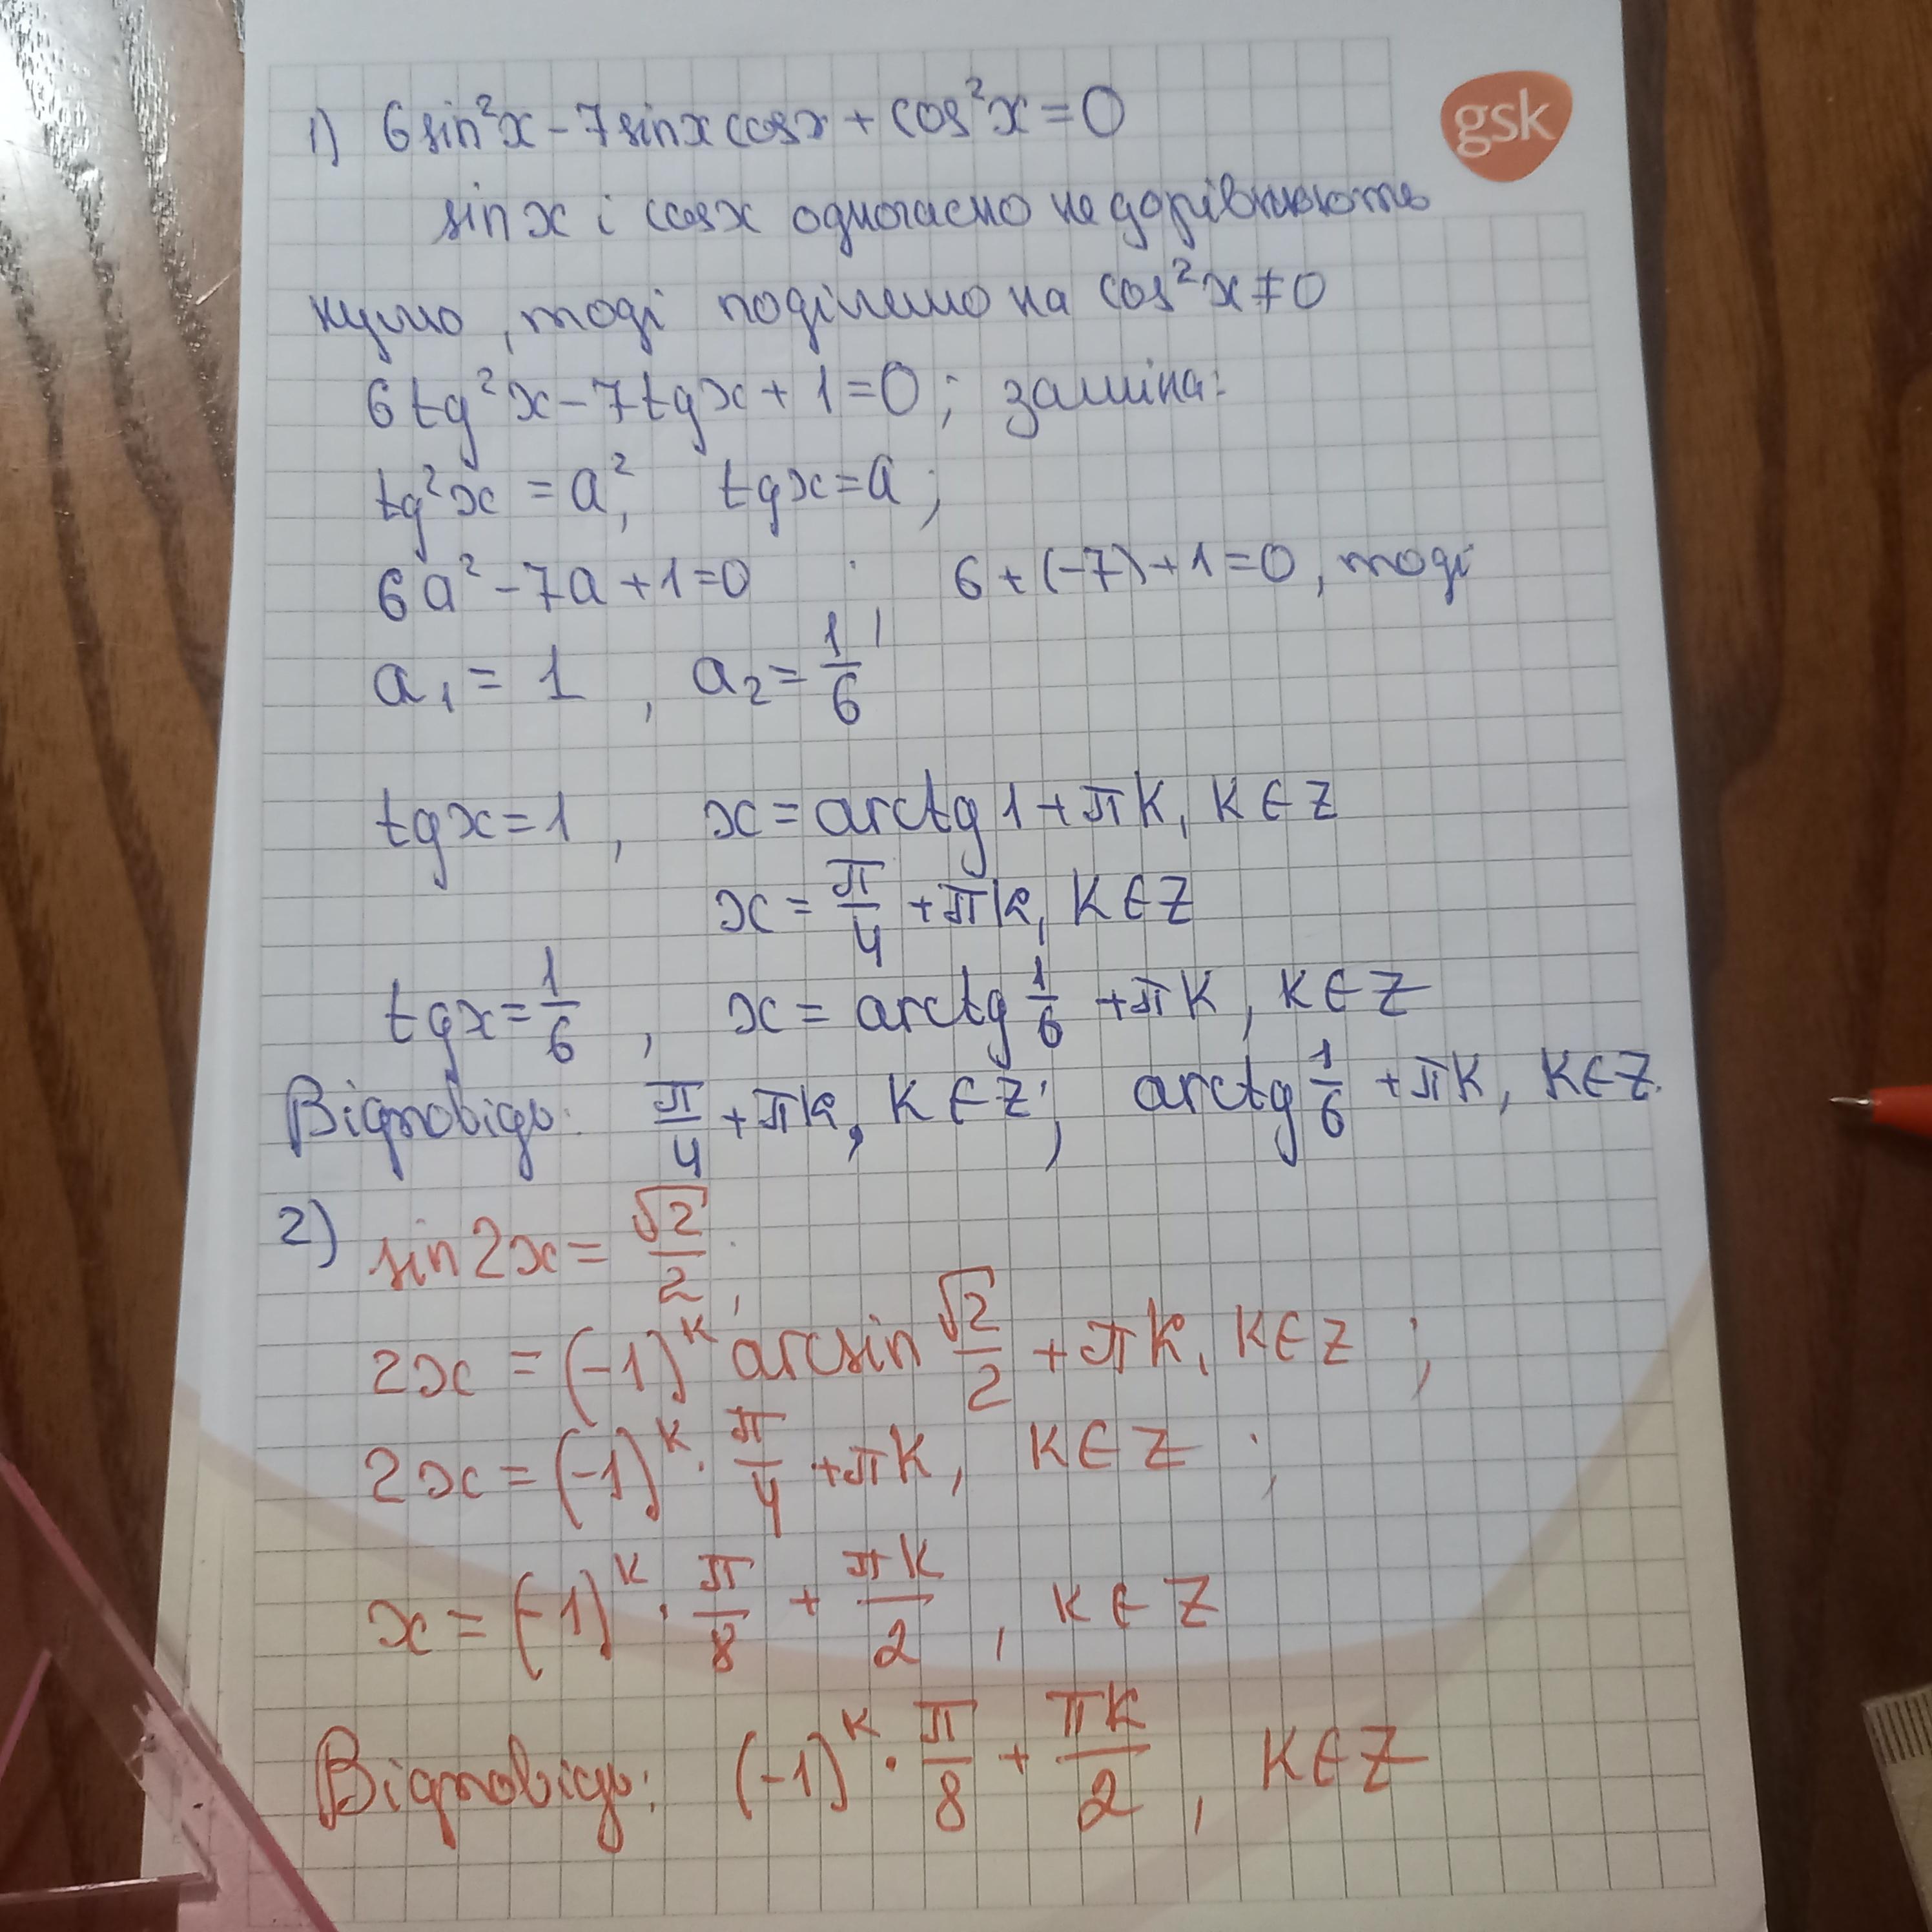 gsk
1) 6sin²x - 7sinxcosx + cos²x = 0
sin x i cosx одночасно не дорівнюють
нулю, тоді поділимо на cos²x ≠ 0
6tg²x - 7tgx + 1 = 0; заміна:
tg²x = a², tgx = a;
6a² - 7a + 1 = 0; 6 + (-7) + 1 = 0, тоді
a₁ = 1, a₂ = 1/6
tgx = 1, x = arctg 1 + πk, k ∈ Z
x = π/4 + πk, k ∈ Z
tgx = 1/6, x = arctg 1/6 + πk, k ∈ Z
Відповідь: π/4 + πk, k ∈ Z; arctg 1/6 + πk, k ∈ Z.
2) sin2x = √2/2;
2x = (-1)ᵏ arcsin √2/2 + πk, k ∈ Z;
2x = (-1)ᵏ · π/4 + πk, k ∈ Z;
x = (-1)ᵏ · π/8 + πk/2, k ∈ Z
Відповідь: (-1)ᵏ · π/8 + πk/2, k ∈ Z